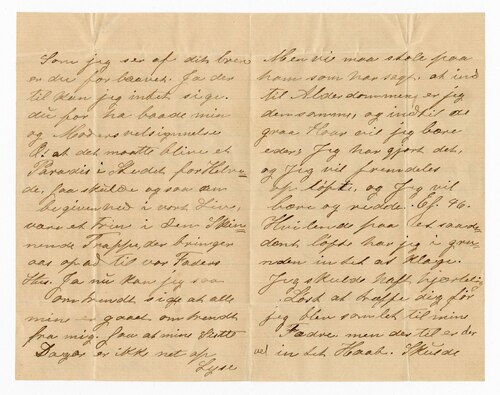 Som jeg ser af dit brev
er du forbauet. Ja der
til kan jeg intet sige.
du for ha baade min
og Moders velsignelse
at det maatte blive et
Paradis i Stedet for Helve-
de, saa skulde ogsaa den
begivenhed i vort Liv,
vare et Trin i den Skin-
nende Trappe, der bringer
aas op til vor Faders
Hus. Ja nu kan jeg saa
omtrendt sige at alle
mine er gaaet omtrendt
fra mig. Saa at mine
Dage er ikke net op
Lyse
Men vil maa stole paa
ham som har sagt. at ind
til Alderdommen er jeg
densamme, og indtil de
graa Haar vil jeg bære
eder, Jeg har gjort det,
og Jeg vil fremdeles
op løfte, og Jeg vil
bære og redde. Es. 46.
Hvilende paa et saa
dant løfte har jeg i grun
den intet at klage.
Jeg skulde haft hjertelig
Lÿst at træffe dig før
jeg blev samlet til mine
Fædre men der til er der
vel intet Haab. Skulde